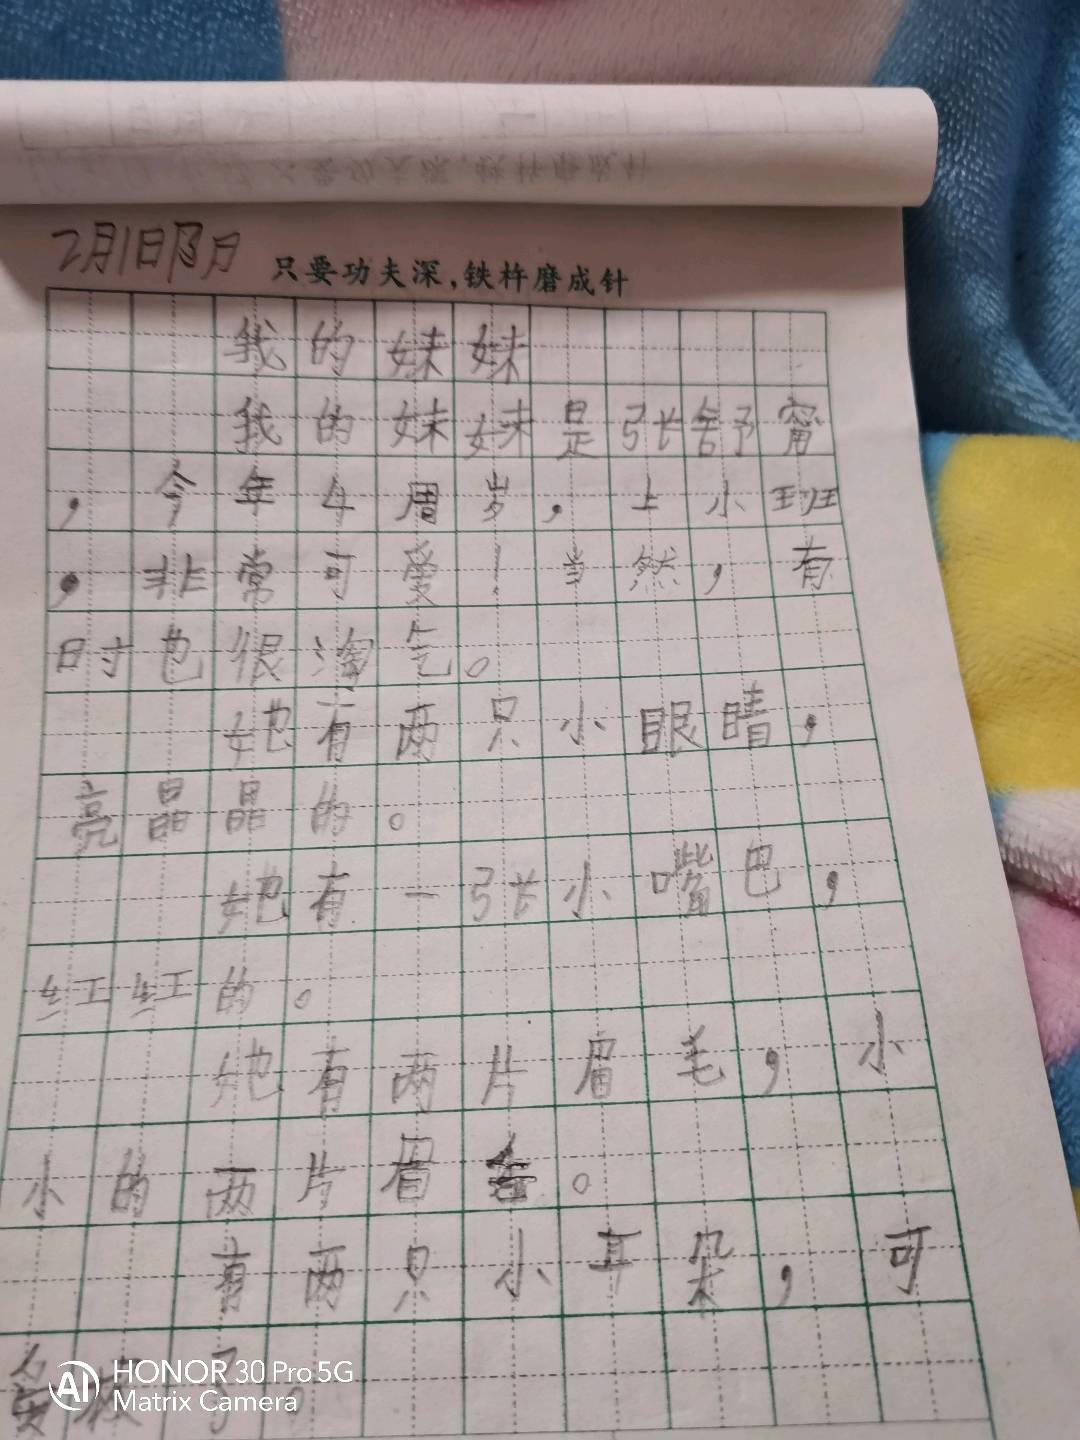 2月1日阴
只要功夫深,铁杵磨成针
我的妹妹
我的妹妹是张舒甯
,今年4周岁,上小班
,非常可爱!当然,有
时也很淘气。
她有两只小眼睛,
亮晶晶的。
她有一张小嘴巴,
红红的。
她有两片眉毛,小
小的两片眉毛。
有两只小耳朵,可
爱极了。
HONOR 30 Pro 5G
Matrix Camera